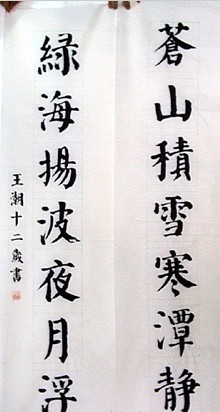 蒼山積雪寒潭靜
緑海揚波夜月浮
王潮十二歲書